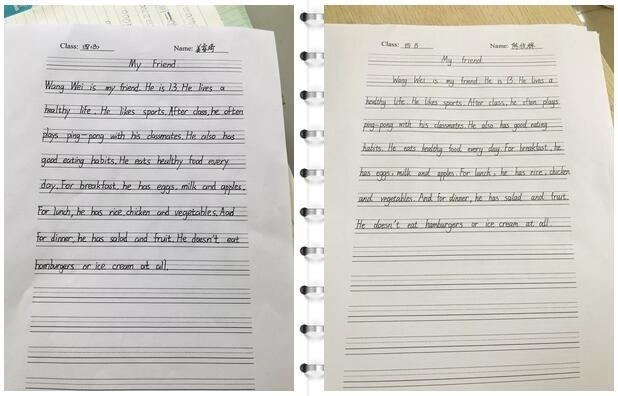 Class: 四
Name:
My Friend
Wang Wei is my friend. He is 13. He lives a
healthy life. He likes sports. After class, he often
plays ping-pong with his classmates. He also has
good eating habits. He eats healthy food every
day. For breakfast, he has eggs, milk and apples.
For lunch, he has rice, chicken and vegetables. And
for dinner, he has salad and fruit. He doesn't eat
hamburgers or ice cream at all.
Class: 四
Name:
My friend
Wang Wei is my friend. He is 13. He lives a
healthy life. He likes sports. After class, he often plays
ping-pong with his classmates. He also has good eating
habits. He eats healthy food every day. For breakfast, he
has eggs, milk and apples. For lunch, he has rice, chicken
and vegetables. And for dinner, he has salad and fruit.
He doesn't eat hamburgers or ice cream at all.